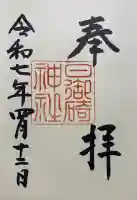 奉拝
日御碕
神社
令和七年四月十三日